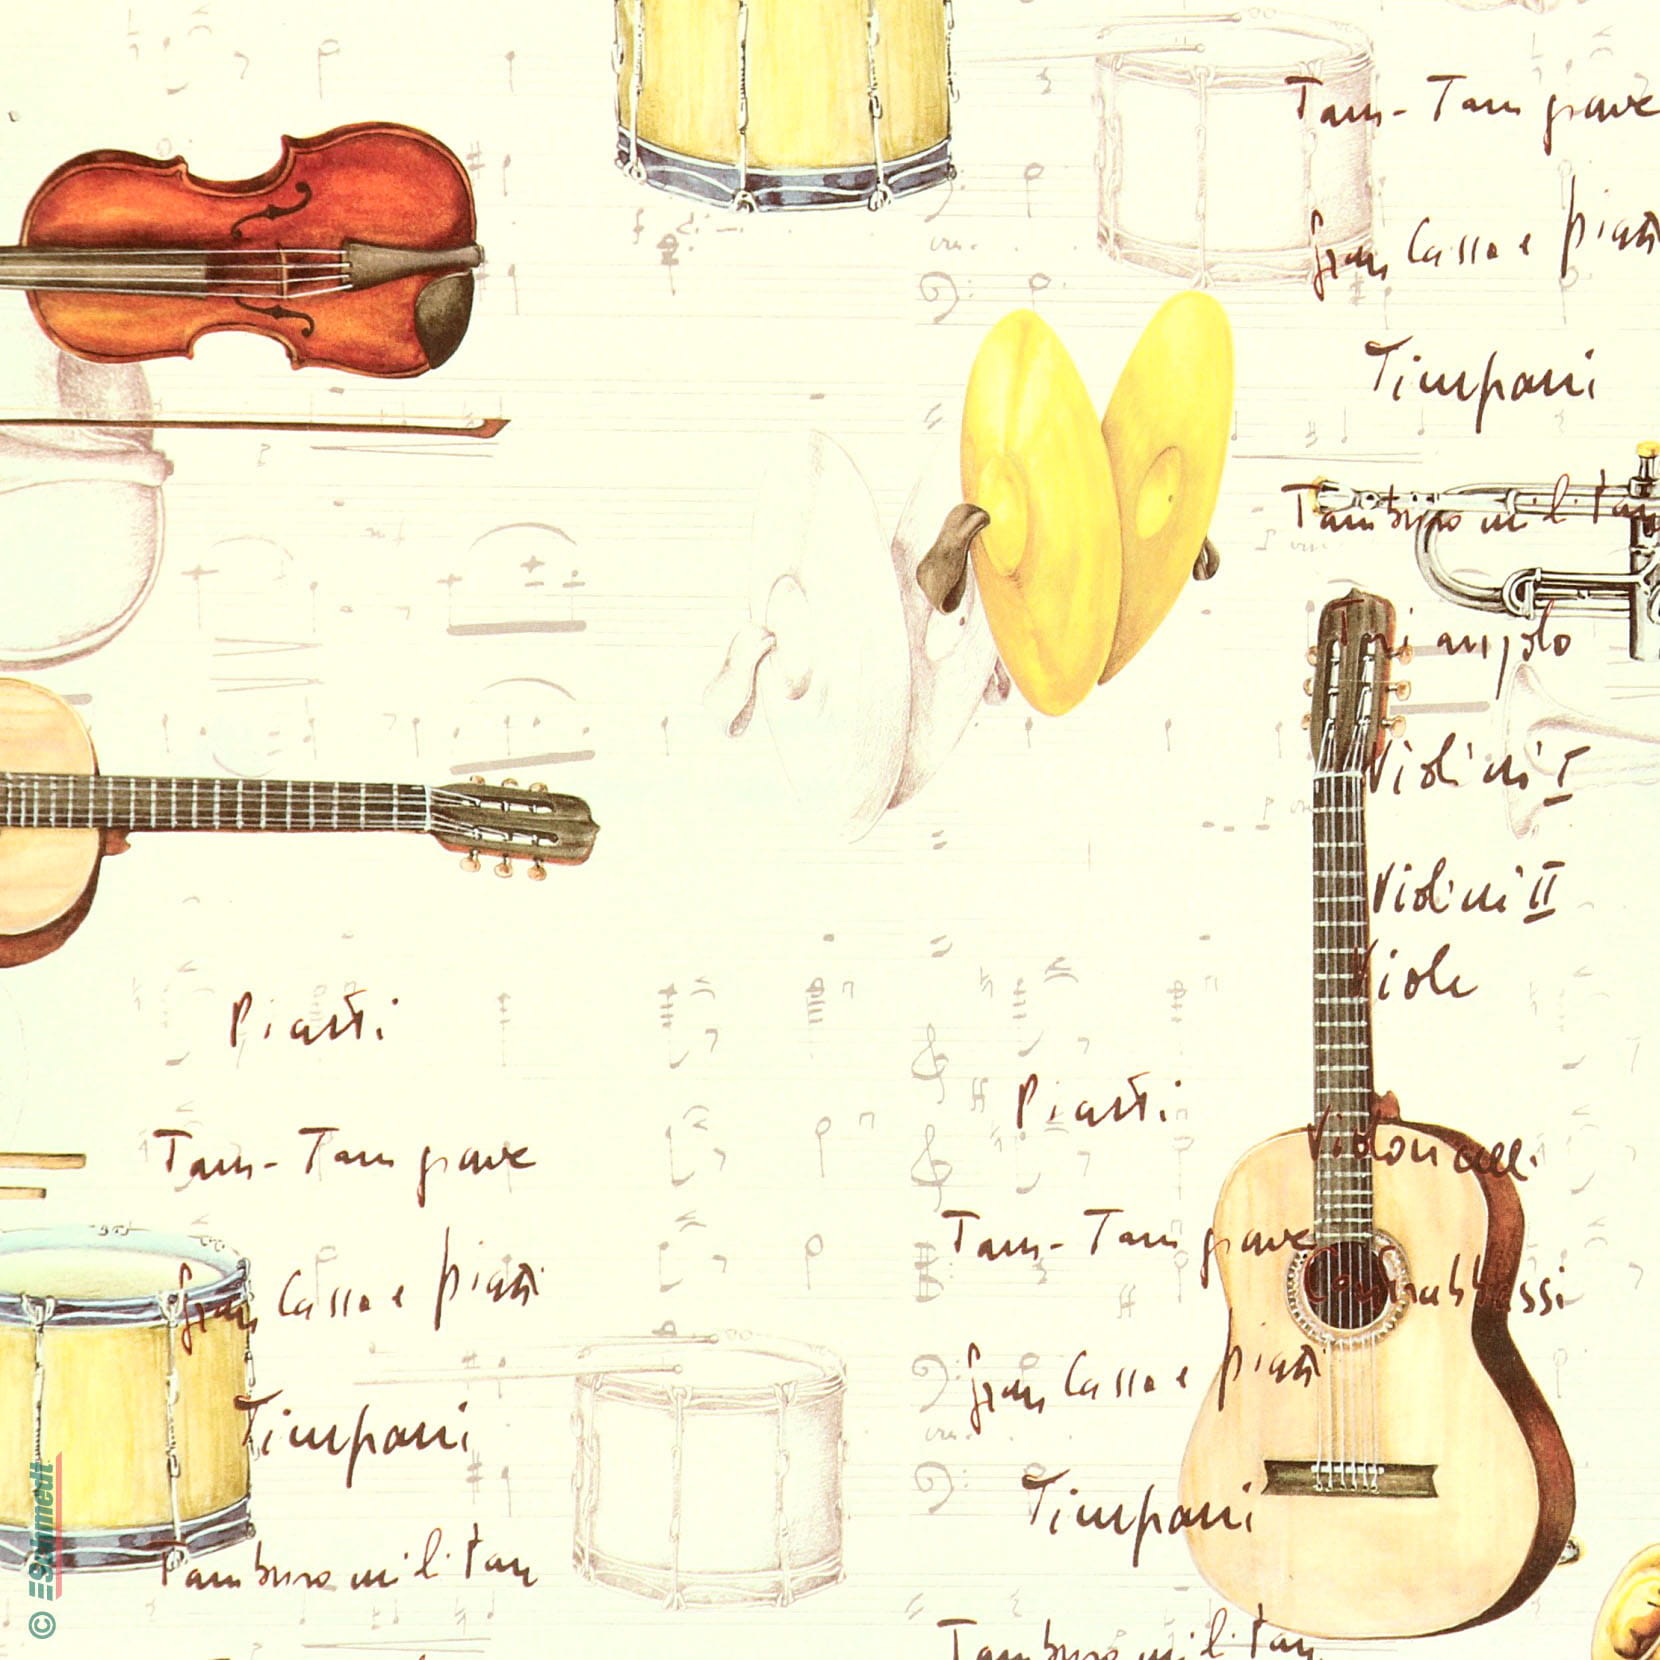 Tam-Tam grave
Gran Cassa e piatti
Timpani
Tamburo militare
Triangolo
Violini I
Violini II
Viole
Violoncelli
Contrabbassi
Piatti
Tam-Tam grave
Gran Cassa e piatti
Timpani
Tamburo militar
Piatti
Tam-Tam grave
Gran Cassa e piatti
Timpani
Tamburo militar
© Schmedt